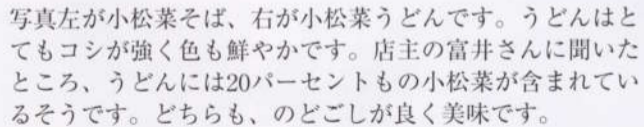 写真左が小松菜そば、右が小松菜うどんです。うどんはと
てもコシが強く色も鮮やかです。店主の富井さんに聞いた
ところ、うどんには20パーセントもの小松菜が含まれてい
るそうです。どちらも、のどごしが良く美味です。